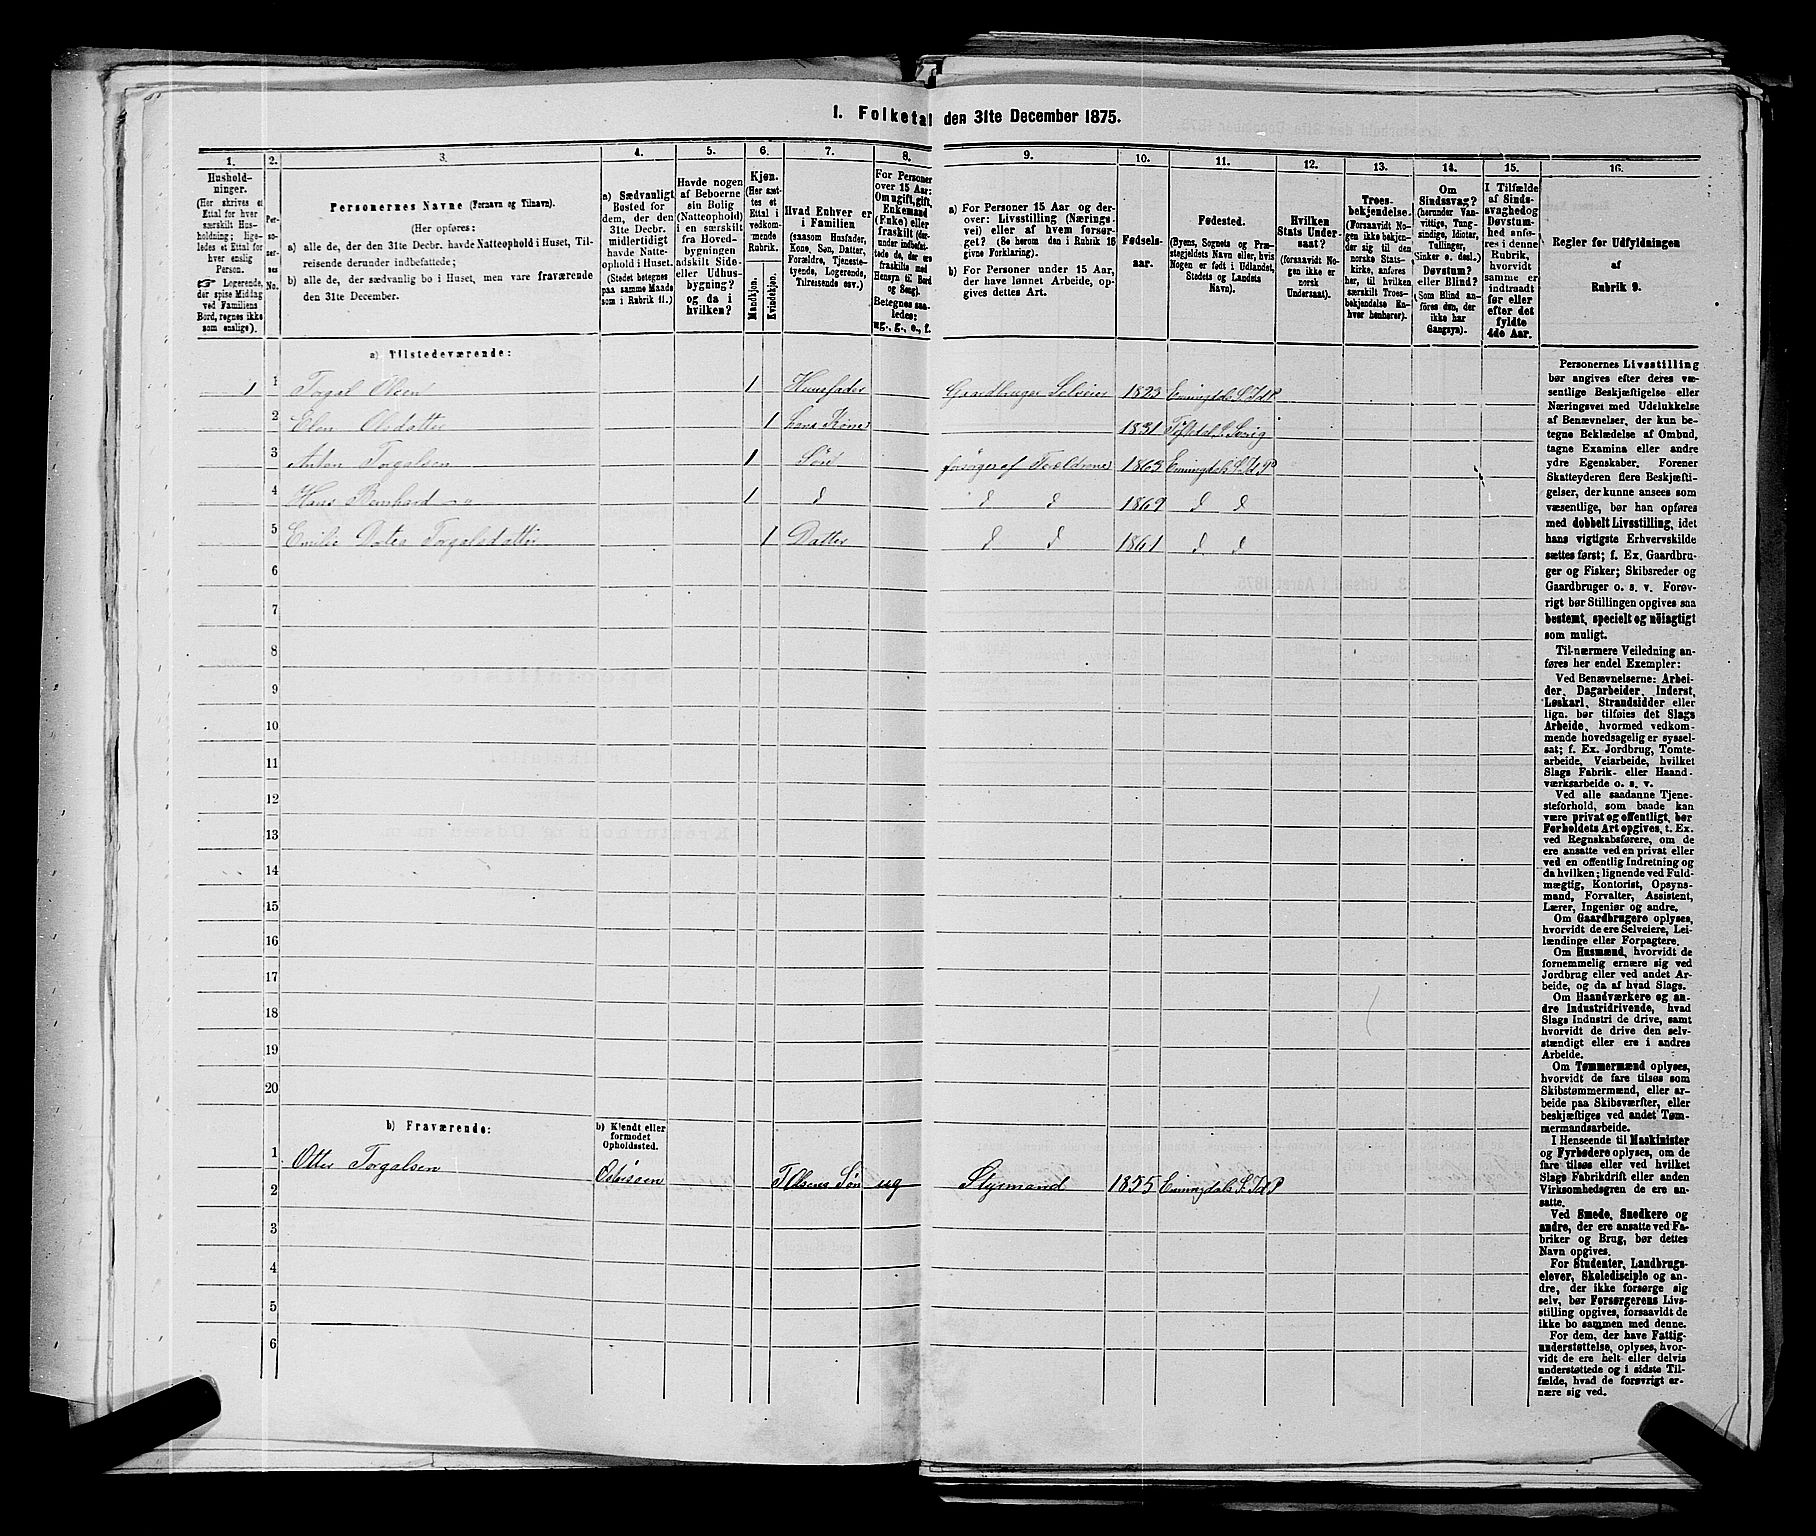 1. Folketal den 31te December 1875.
1.
2.
3.
4.
5.
6.
7.
8.
9.
10.
11.
12.
13.
14.
15.
16.
Hushold-
ninger.
(Her skrives et
Ettal for hver
særskilt Hus-
holdning; lige-
ledes et Ettal for
hver enslig
Person.
☞ Logerende,
der spise Middag
ved Familiens
Bord, regnes ikke
som enslige).
Per-
so-
ner-
nes
No.
Personernes Navne (Fornavn og Tilnavn).
(Her opføres:
a) alle de, der den 31te Decbr. havde Natteophold i Huset, Til-
reisende derunder indbefattede;
b) alle de, der sædvanlig bo i Huset, men vare fraværende
den 31te December.
a) Sædvanligt
Bosted for
dem, der den
31te Decbr.
midlertidigt
havde Natte-
ophold i Huset.
(Stedet betegnes
paa samme Maade
som i Rubrik 11.)
Havde nogen
af Beboerne
sin Bolig
(Natteophold)
i en særskilt
fra Hoved-
bygningen
adskilt Side-
eller Udhus-
bygning?
og da i
hvilken?
Kjøn.
(Her sæt-
tes et
Ettal i
vedkom-
mende
Rubrik.
Mandkjøn.
Kvindekjøn.
Hvad Enhver er
i Familien
(saasom Husfader,
Kone, Søn, Datter,
Forældre, Tjeneste-
tyende, Logerende,
Tilreisende osv.)
For Personer
over 15 Aar:
Om ugift, gift,
Enkemand
(Enke) eller
fraskilt (der-
under indbefat-
tede de, der ere
fraskilte med
Hensyn til Bord
og Seng).
Betegnes saa-
ledes:
ug., g., e., f.
a) For Personer 15 Aar og der-
over: Livsstilling (Nærings-
vei) eller af hvem forsør-
get? (Se herom den i Rubrik 16
givne Forklaring).
b) For Personer under 15 Aar,
der have lønnet Arbeide, op-
gives dettes Art.
Fødsels-
aar.
Fødested.
(Byens, Sognets og Præ-
stegjeldets Navn eller, hvis
Nogen er født i Udlandet,
Stedets og Landets
Navn).
Hvilken
Stats Under-
saat?
(forsaavidt No-
gen ikke er
norsk
Undersaat).
Troes-
bekjendelse.
(Forsaavidt No-
gen ikke bekjen-
der sig til den
norske Stats-
kirke, anføres
her, til hvilken
særskilt Troes-
bekjendelse En-
hver henhører).
Om
Sindssvag?
(herunder Van-
vittige, Tung-
sindige, Idioter,
Tullinger,
Sinker o. desl.).
Døvstum?
eller Blind?
(Som Blind an-
føres den, der
ikke har
Gangsyn).
I Tilfælde
af Sinds-
svaghed og
Døvstum-
hed anfø-
res i denne
Rubrik,
hvorvidt
samme er
indtraadt
før eller
efter det
fyldte
4de Aar.
Regler for Udfyldningen
af
Rubrik 9.
a) Tilstedeværende:
1 1 Torgal Olsen 1 Huusfader Gaardbruger Selveier 1823 Enningdals S. Id P
2 Elen Olsdatter 1 hans Kone 1831
3 Anton Torgalsen 1 Søn forsørges af Forældrene 1863 Enningdals S. Id P
4 Hans Bernhard — „ 1 d d d 1869 d d
5 Emilie Torgalsdatter 1 Datter d d 1861 d d
6
7
8
9
10
11
12
13
14
15
16
17
18
19
20
b) Fraværende:
b) Kjendt eller
formodet
Opholdssted.
1 Otter Torgalsen Østersøen T Olsens Søn ug Styrmand 1855 Enningdals S. Id P
2
3
4
5
6
Personernes Livsstilling
bør angives efter deres væ-
sentlige Beskjæftigelse eller
Næringsvei med Udelukkelse
af Benævnelser, der kun be-
tegne Beklædelse af Ombud,
tagne Examina eller andre
ydre Egenskaber. Forener
Skatteyderen flere Beskjæfti-
gelser, der kunne ansees som
væsentlige, bør han opføres
med dobbelt Livsstilling, idet
hans vigtigste Erhvervskilde
sættes først; f. Ex. Gaardbru-
ger og Fisker; Skibsreder og
Gaardbruger o. s. v. Forøv-
rigt bør Stillingen opgives saa
bestemt, specielt og nøiagtigt
som muligt.
Til nærmere Veiledning an-
føres her endel Exempler:
Ved Benævnelserne: Arbei-
der, Dagarbeider, Inderst,
Løskarl, Strandsidder eller
lign. bør tilføies det Slags
Arbeide, hvormed vedkom-
mende hovedsagelig er syssel-
sat; f. Ex. Jordbrug, Tomte-
arbeide, Veiarbeide, hvilket
Slags Fabrik- eller Haand-
værksarbeide o. s. v.
Ved alle saadanne Tjene-
steforhold, som baade kan
være privat og offentligt, bør
Forholdets Art opgives, t. Ex.
ved Regnskabsførere, om de
ere ansatte ved en privat eller
ved en offentlig Indretning og
da hvilken; lignende ved Fuld-
mægtig, Kontorist, Opsyns-
mand, Forvalter, Assistent,
Lærer, Ingeniør og andre.
Om Gaardbrugere oplyses,
hvorvidt de ere Selveiere, Lei-
lændinge eller Forpagtere.
Om Husmænd, hvorvidt de
fornemmelig ernære sig ved
Jordbrug eller ved andet Ar-
beide, og da af hvad Slags.
Om Haandværkere og an-
dre Industridrivende, hvad
Slags Industri de drive, samt
hvorvidt de drive den selv-
stændigt eller ere i andres
Arbeide.
Om Tømmermænd oplyses,
hvorvidt de fare tilsøs som
Skibstømmermænd, eller ar-
beide paa Skibsværfter, eller
beskjæftiges ved andet Tøm-
mermandsarbeide.
I Henseende til Maskinister
og Fyrbødere oplyses, om de
fare tilsøs eller ved hvilket
Slags Fabrikdrift eller anden
Virksomhedsgren de ere an-
satte.
Ved Smede, Snedkere og
andre, der ere ansatte ved Fa-
briker og Brug, bør dettes
Navn opgives.
For Studenter, Landbrugs-
elever, Skoledisciple og an-
dre, der ikke forsørge sig
selv, bør Forsørgerens Livs-
stilling opgives, forsaavidt de
ikke bo sammen med denne.
For dem, der have Fattig-
understøttelse, oplyses, hvor-
vidt de ere helt eller delvis
understøttede og i sidste Til-
fælde, hvad de forøvrigt er-
nære sig ved.